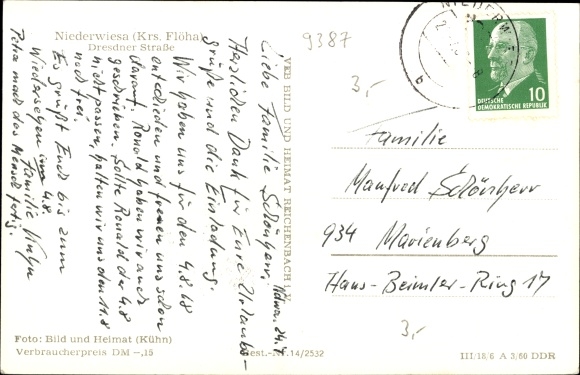 Niederwiesa (Krs. Flöha)
Dresdner Straße
9387
3,-
NIEDERWIESA
DEUTSCHE
DEMOKRATISCHE REPUBLIK
10
VEB BILD UND HEIMAT REICHENBACH i. V.
Ndwa. 24.7
Liebe Familie Schönherr,
Herzlichen Dank für Eure Urlaubs-
grüße und die Einladung.
Wir haben uns für den 4.8.68
entschieden und freuen uns schon
darauf. Ronald haben wir auch
geschrieben. Sollte Ronald der 4.8
nicht passen, halten wir uns den 11.8
noch frei.
Es grüßt Euch bis zum
Wiedersehen am 4.8.
Familie
Petra mach den Mensch fertig.
Familie
Manfred Schönherr
934 Marienberg
Hans-Beimler-Ring 17
3,-
Foto: Bild und Heimat (Kühn)
Verbraucherpreis DM -,15
Best.-Nr. 14/2532
III/18/6 A 3/60 DDR